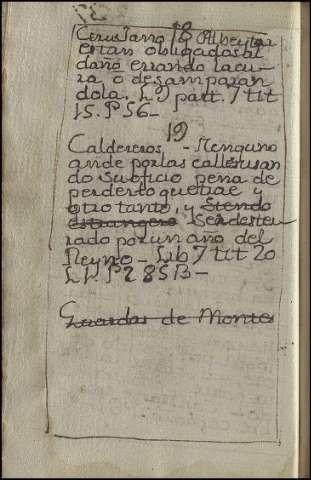 18
Cirustano y Albeytar
estan obligados al
daño errando la cu-
ra o desamparan
dola. L 9 part. 7 tit
15. P 56-
19
Caldereros, - Nenguno
ande por las calles usan
do su oficio pena de
perder lo que trae y
otro tanto, y siendo
estrangero ser dester
rado por un año del
Reyno - Lib 7 tit 20
L 1. P 285 B -
Guardas de Montes